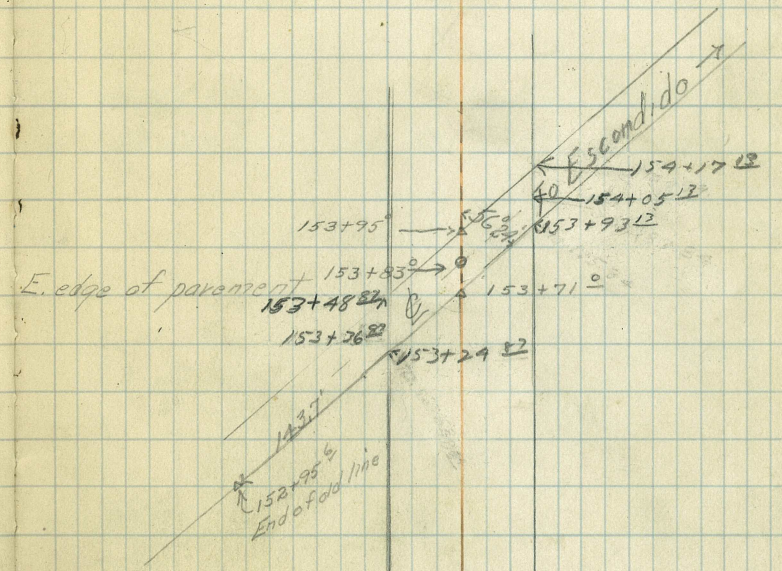 to Escondido
154+17 13
154+05 13
153+93 13
153+95 0
56°
153+83 0
153+71 0
E. edge of pavement
153+48 87
℄
153+36 87
153+24 87
143.7'
152+95 6
End of old line